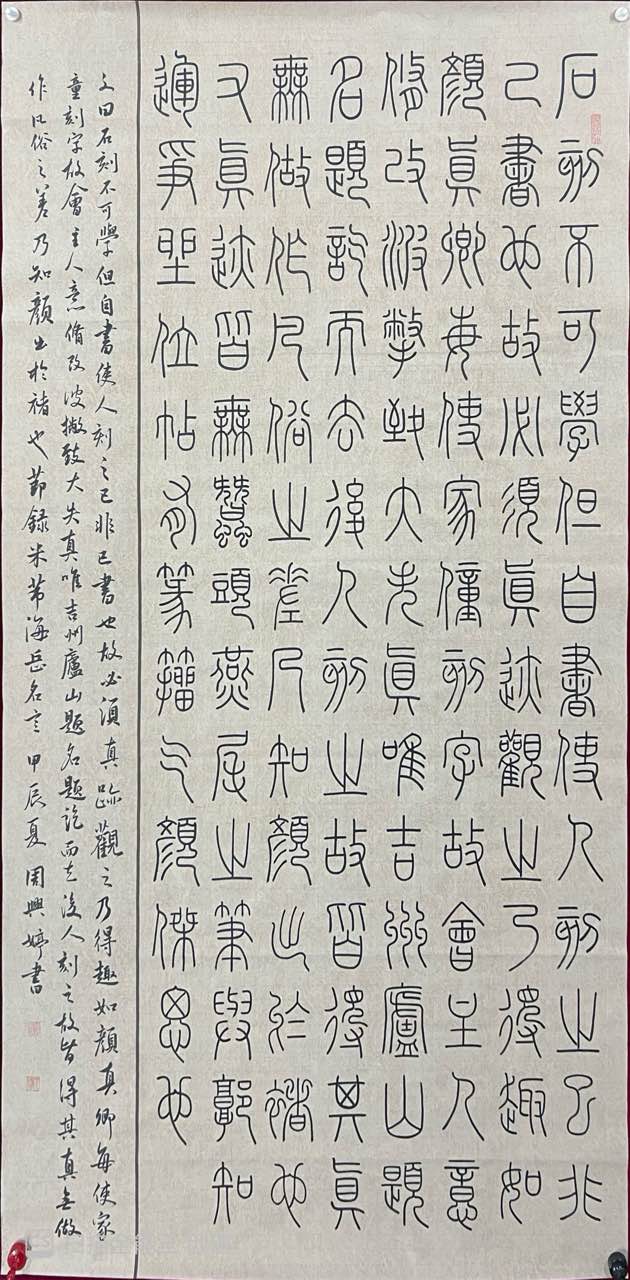 石刻不可學但自書使人刻之已非
己書也故必須真迹觀之乃得趣如
顏真卿每使家僮刻字故會主人意
修改波撇致大失真唯吉州廬山題
名題訖而去後人刻之故皆得其真
無做作凡俗之差乃知顏出於褚也
又真迹皆無蠶頭燕尾之筆與郭知
運爭坐位帖有篆籀气顏傑思也
文曰石刻不可學但自書使人刻之已非己書也故必須真跡觀之乃得趣如顏真卿每使家
童刻字故會主人意脩改波撇致大失真唯吉州廬山題名題訖而去後人刻之故皆得其真無做
作凡俗之差乃知顏出於褚也節錄米芾海岳名言甲辰夏周興婷書